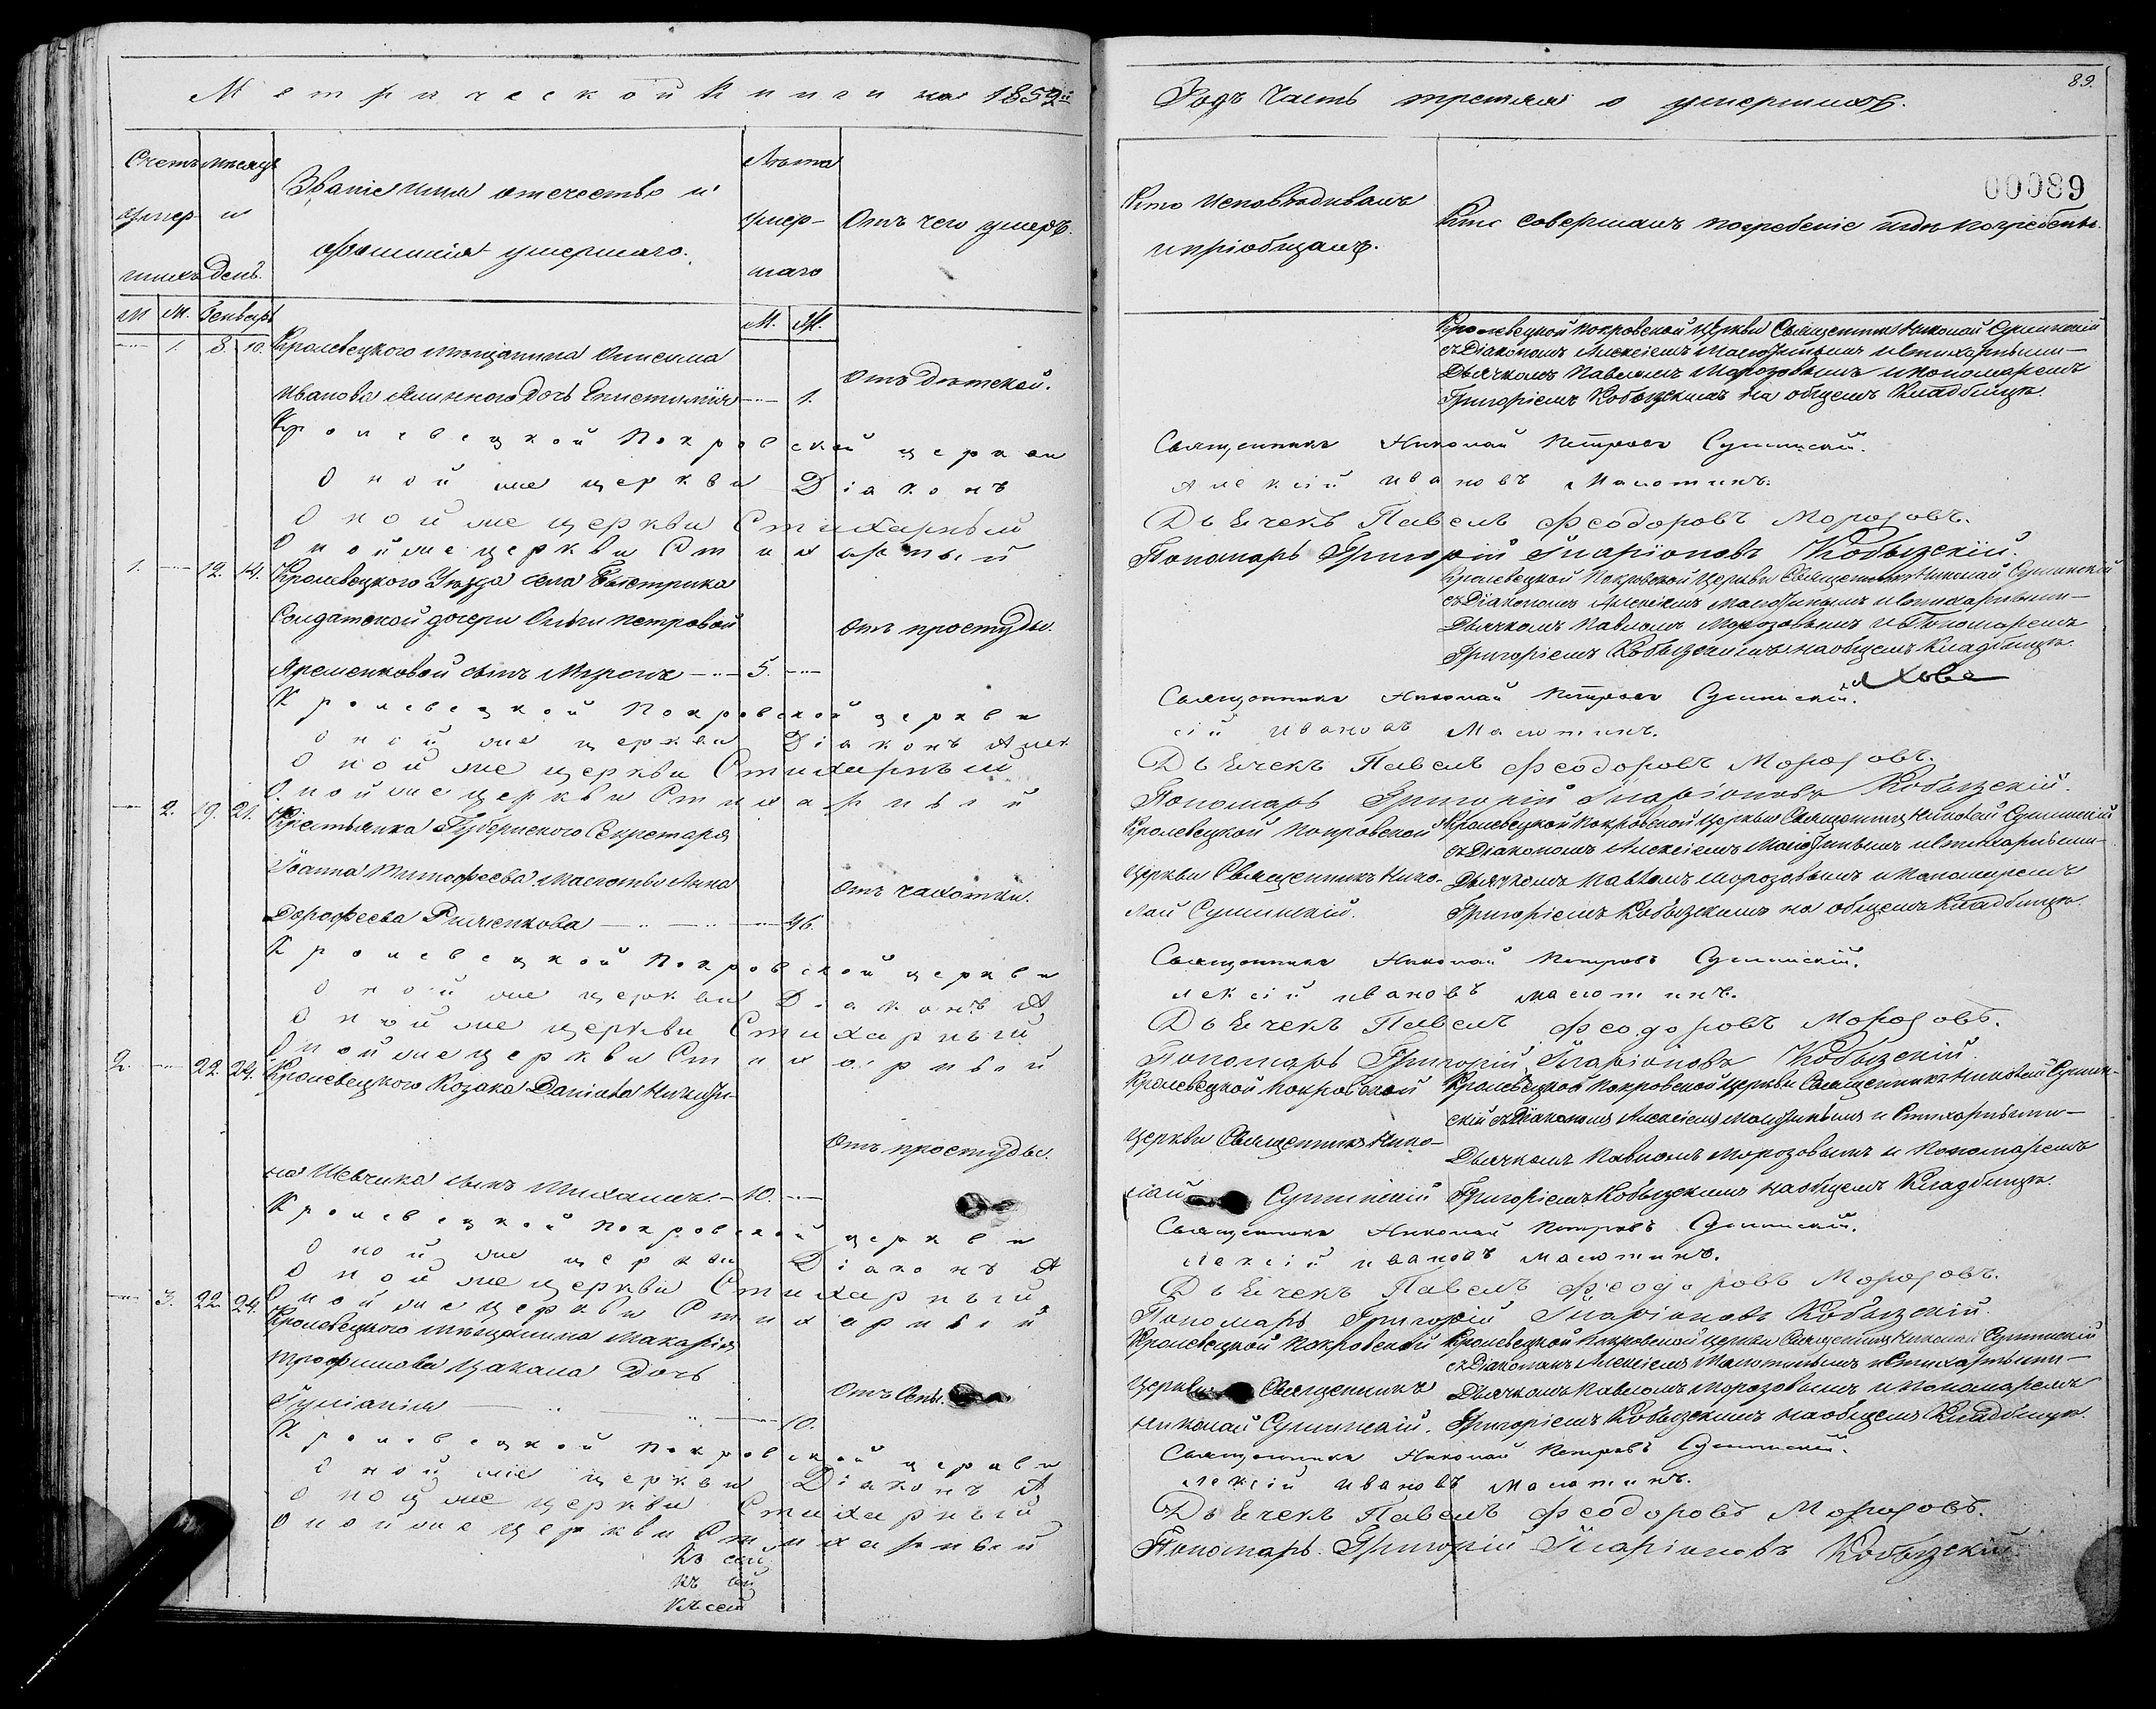 Метрической Книги на 1852й
Годъ Часть третяя о умершихъ.
89.
00089
Счетъ умер- шихъ
мѣсяцъ и день.
Званіе имя отечество и
фамилія умершаго.
Лѣта умер- шаго
Отъ чего умеръ.
Кто исповѣдивалъ
и пріобщалъ.
Кто совершалъ погребеніе и гдѣ погребены.
М. Генварь М. Ж.
1. 8. 10. Кролевецкого мѣщанина Онисима
Иванова дочь 1.
Отъ дѣтской.
Кролевецкой Покровской Церкви Священник Николай
съ Діакономъ Алексіемъ и стихарными
Дьячкомъ Павломъ Морозовымъ и пономаремъ
Григоріемъ Кобызскимъ на общемъ Кладбищѣ.
Кролевецкой Покровской церкви Священникъ Николай Петровъ
Оной же церкви Діаконъ Алексій Ивановъ
Оной же церкви Стихарный Дьячекъ Павелъ Феодоровъ Морозовъ.
Оной же церкви Стихарный Пономарь Григорій Иларіоновъ Кобызскій.
1. 12. 14. Кролевецкого Уезда села Быстрика
Солдатской дочери Ольги Петровой
Яременковой сынъ Миронъ 5.
Отъ простуды.
Кролевецкой Покровской Церкви Священникъ Николай
съ Діакономъ Алексіемъ и стихарными
Дьячкомъ Павломъ Морозовымъ и Пономаремъ
Григоріемъ Кобызскимъ на общемъ Кладбищѣ.
Кролевецкой Покровской церкви Священникъ Николай Петровъ
Оной же церкви Діаконъ Алексій Ивановъ
Оной же церкви Стихарный Дьячекъ Павелъ Феодоровъ Морозовъ.
Оной же церкви Стихарный Пономарь Григорій Иларіоновъ Кобызскій.
2. 19. 21. Крестьянка Губернского Секретаря
Іоанна Тимофеева Анна
Дорофеева 46.
Отъ чахотки.
Кролевецкой Покровской
церкви Священникъ Нико-
лай
Кролевецкой Покровской Церкви Священникъ Николай
съ Діакономъ Алексіемъ и стихарными
Дьячкомъ Павломъ Морозовымъ и Пономаремъ
Григоріемъ Кобызскимъ на общемъ Кладбищѣ.
Кролевецкой Покровской церкви Священникъ Николай Петровъ
Оной же церкви Діаконъ Алексій Ивановъ
Оной же церкви Стихарный Дьячекъ Павелъ Феодоровъ Морозовъ.
Оной же церкви Стихарный Пономарь Григорій Иларіоновъ Кобызскій.
2. 22. 24. Кролевецкого Козака Даніила
на Шевчика сынъ Михаилъ 10.
Отъ простуды.
Кролевецкой Покровской
церкви Священникъ Нико-
лай
Кролевецкой Покровской Церкви Священникъ Николай
скій съ Діакономъ Алексіемъ и Стихарными
Дьячкомъ Павломъ Морозовымъ и Пономаремъ
Григоріемъ Кобызскимъ на общемъ Кладбищѣ.
Кролевецкой Покровской церкви Священникъ Николай Петровъ
Оной же церкви Діаконъ Алексій Ивановъ
Оной же церкви Стихарный Дьячекъ Павелъ Феодоровъ Морозовъ.
Оной же церкви Стихарный Пономарь Григорій Иларіоновъ Кобызскій.
3. 22. 24. Кролевецкого мѣщанина Макарія
Трофимова Цакала Дочь
Іуліанія 10.
Кролевецкой Покровской
Церкви Священникъ
Николай
Кролевецкой Покровской церкви Священникъ Николай
съ Діакономъ Алексіемъ и Стихарными
Дьячкомъ Павломъ Морозовымъ и Пономаремъ
Григоріемъ Кобызскимъ на общемъ Кладбищѣ.
Кролевецкой Покровской церкви Священникъ Николай Петровъ
Оной же церкви Діаконъ Алексій Ивановъ
Оной же церкви Стихарный Дьячекъ Павелъ Феодоровъ Морозовъ.
Оной же церкви Стихарный Пономарь Григорій Иларіоновъ Кобызскій.
Къ сей
къ сей
къ сей